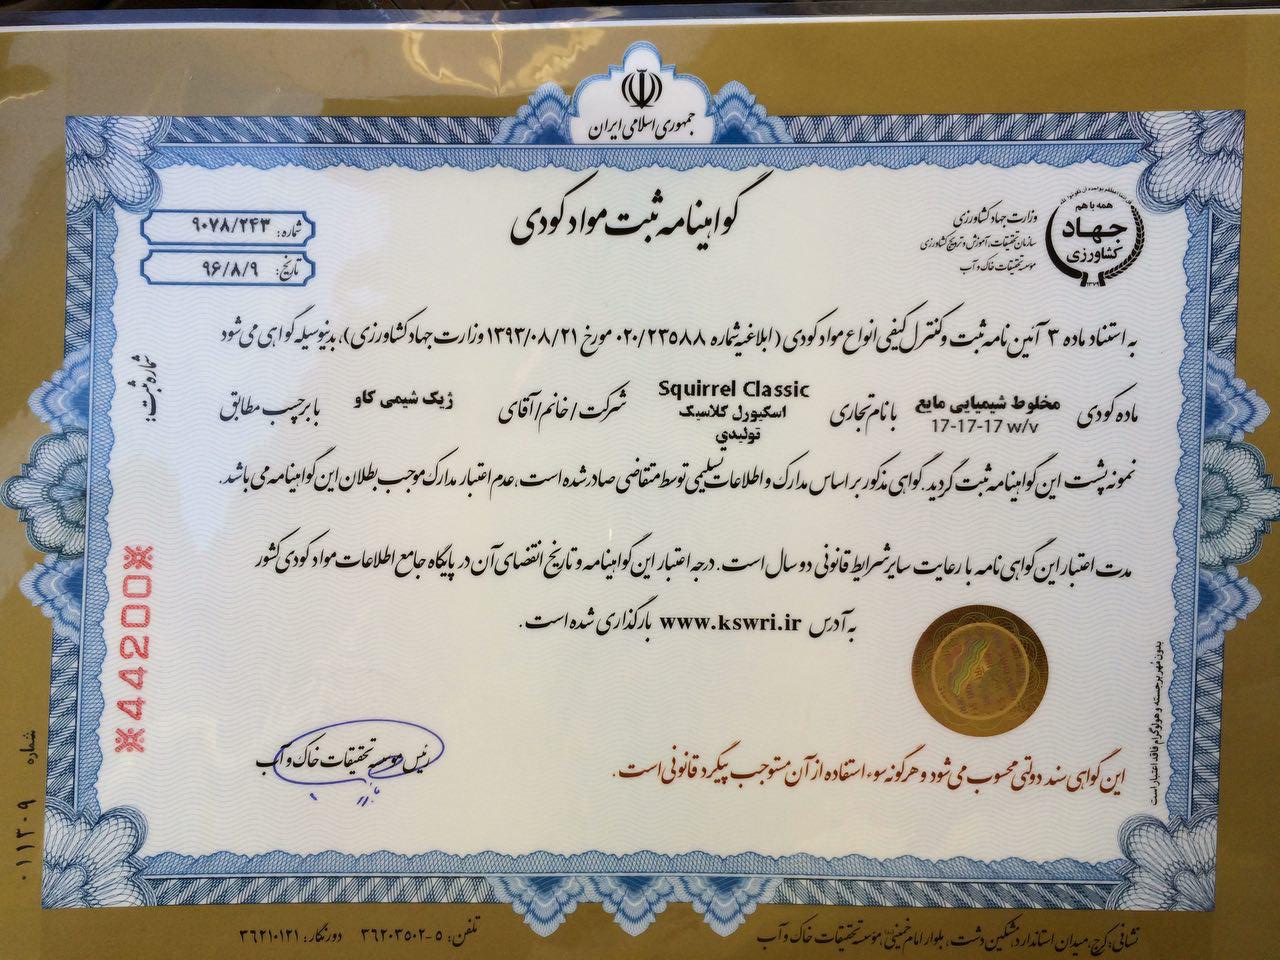 جمهوری اسلامی ایران
همه با هم
جهاد
کشاورزی
۱۳۷۹
وزارت جهاد کشاورزی
سازمان تحقیقات، آموزش و ترویج کشاورزی
مؤسسه تحقیقات خاک و آب
گواهینامه ثبت مواد کودی
شماره: ۹۰۷۸/۲۴۳
تاریخ: ۹۶/۸/۹
به استناد ماده ۳ آئین نامه ثبت و کنترل کیفی انواع مواد کودی (ابلاغیه شماره ۰۲۰/۲۳۵۸۸ مورخ ۱۳۹۳/۰۸/۲۱ وزارت جهاد کشاورزی)، بدینوسیله گواهی می شود
ماده کودی مخلوط شیمیایی مایع 17-17-17 w/v با نام تجاری Squirrel Classic اسکیورل کلاسیک تولیدی شرکت/خانم/آقای ژیک شیمی کاو با برچسب مطابق
نمونه پشت این گواهینامه ثبت گردید. گواهی مذکور بر اساس مدارک و اطلاعات تسلیمی توسط متقاضی صادر شده است، عدم اعتبار مدارک موجب بطلان این گواهینامه می باشد.
مدت اعتبار این گواهی نامه با رعایت سایر شرایط قانونی دو سال است. درجه اعتبار این گواهینامه و تاریخ انقضای آن در پایگاه جامع اطلاعات مواد کودی کشور
به آدرس www.kswri.ir بارگذاری شده است.
شماره ثبت:
※44200※
رئیس موسسه تحقیقات خاک و آب
این گواهی سند دولتی محسوب می شود و هرگونه سوء استفاده از آن مستوجب پیگرد قانونی است.
بدون مهر برجسته و هولوگرام فاقد اعتبار است
شماره ۰۱۱۳۰۹
نشانی: کرج، میدان استاندارد، مشکین دشت، بلوار امام خمینی، مؤسسه تحقیقات خاک و آب
تلفن: ۵-۳۶۲۰۳۵۰۲ دورنگار: ۳۶۲۱۰۱۲۱